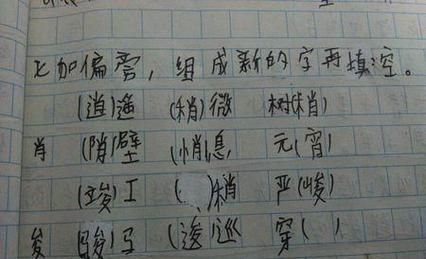 加偏旁，组成新的字再填空。
(逍)遥 (稍)微 树(梢)
肖 (陗)壁 (悄)息 元(宵)
(竣)工 ( )稍 严(峻)
夋 (骏)马 (逡)巡 穿( )